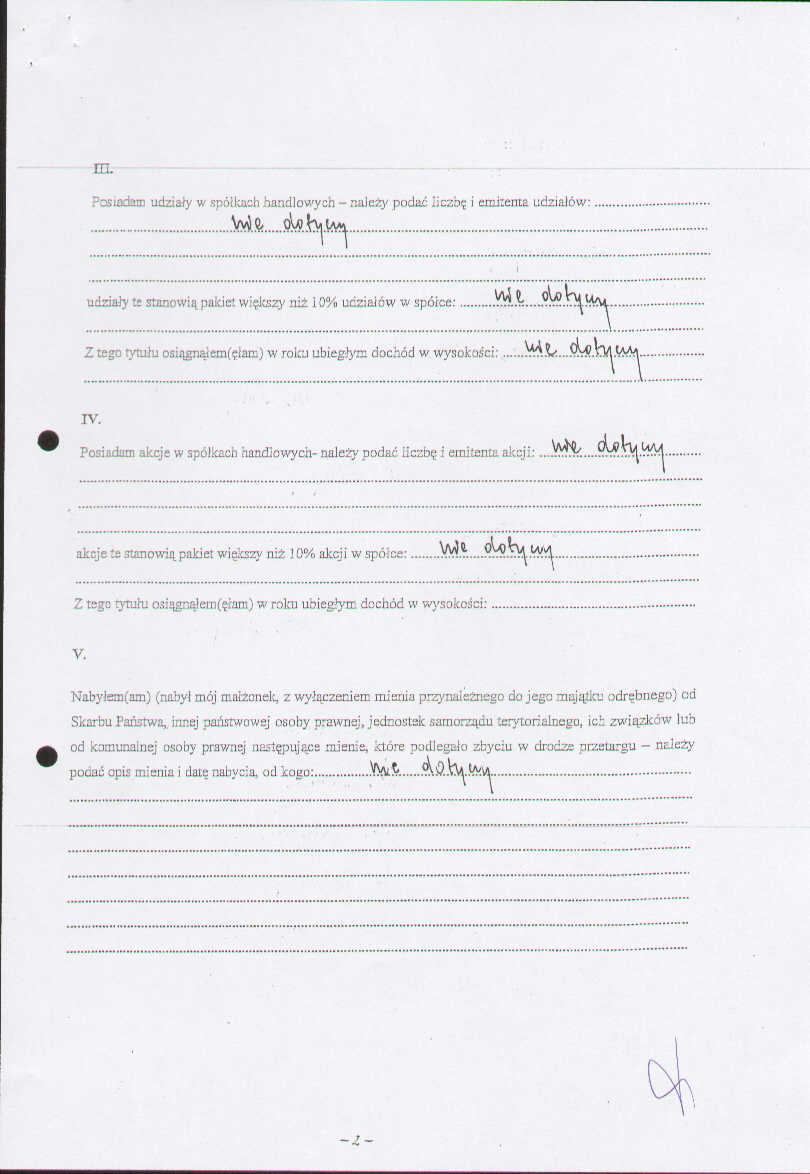 III.
Posiadam udziały w spółkach handlowych – należy podać liczbę i emitenta udziałów: ..............................
nie dotyczy
udziały te stanowią pakiet większy niż 10% udziałów w spółce: nie dotyczy
Z tego tytułu osiągnąłem(ęłam) w roku ubiegłym dochód w wysokości: nie dotyczy
IV.
Posiadam akcje w spółkach handlowych- należy podać liczbę i emitenta akcji: nie dotyczy
akcje te stanowią pakiet większy niż 10% akcji w spółce: nie dotyczy
Z tego tytułu osiągnąłem(ęłam) w roku ubiegłym dochód w wysokości: ..............................
V.
Nabyłem(am) (nabył mój małżonek, z wyłączeniem mienia przynależnego do jego majątku odrębnego) od
Skarbu Państwa, innej państwowej osoby prawnej, jednostek samorządu terytorialnego, ich związków lub
od komunalnej osoby prawnej następujące mienie, które podlegało zbyciu w drodze przetargu – należy
podać opis mienia i datę nabycia, od kogo: nie dotyczy
– 2 –